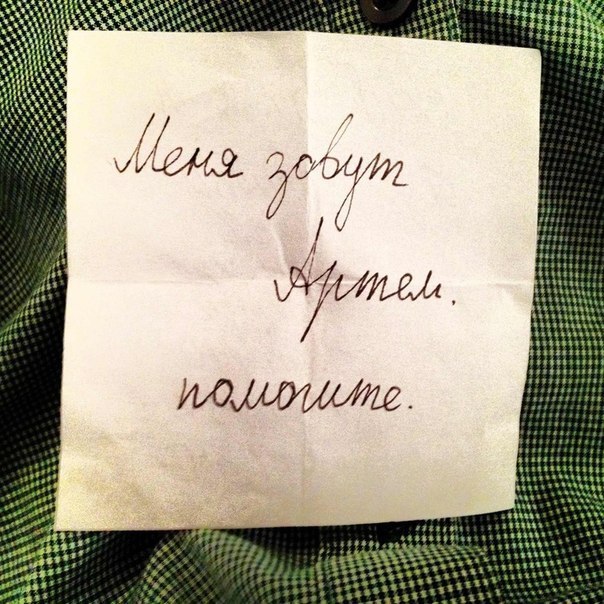 Меня зовут
Артем.
помогите.